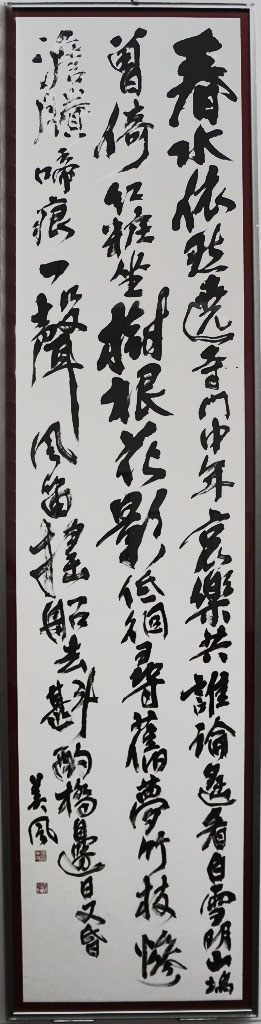 春水依然遶寺門中年哀樂共誰論遙看白雪明山塢
曾倚紅糚坐樹根花影低徊尋舊夢竹枝慘
澹賸啼痕一聲風笛搖船去斟酌橋邊日又昏
美風